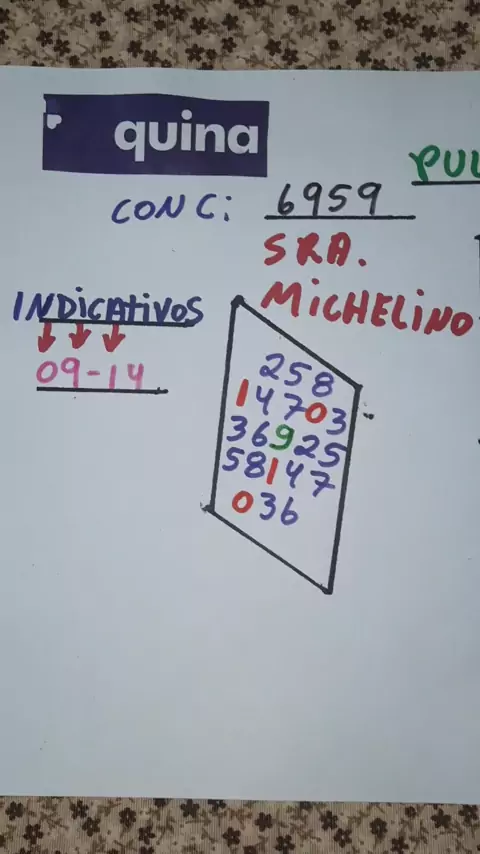 quina
PUL
CONC: 6959
SRA.
MICHELINO
INDICATIVOS
09-14
258
14703
36925
58147
036